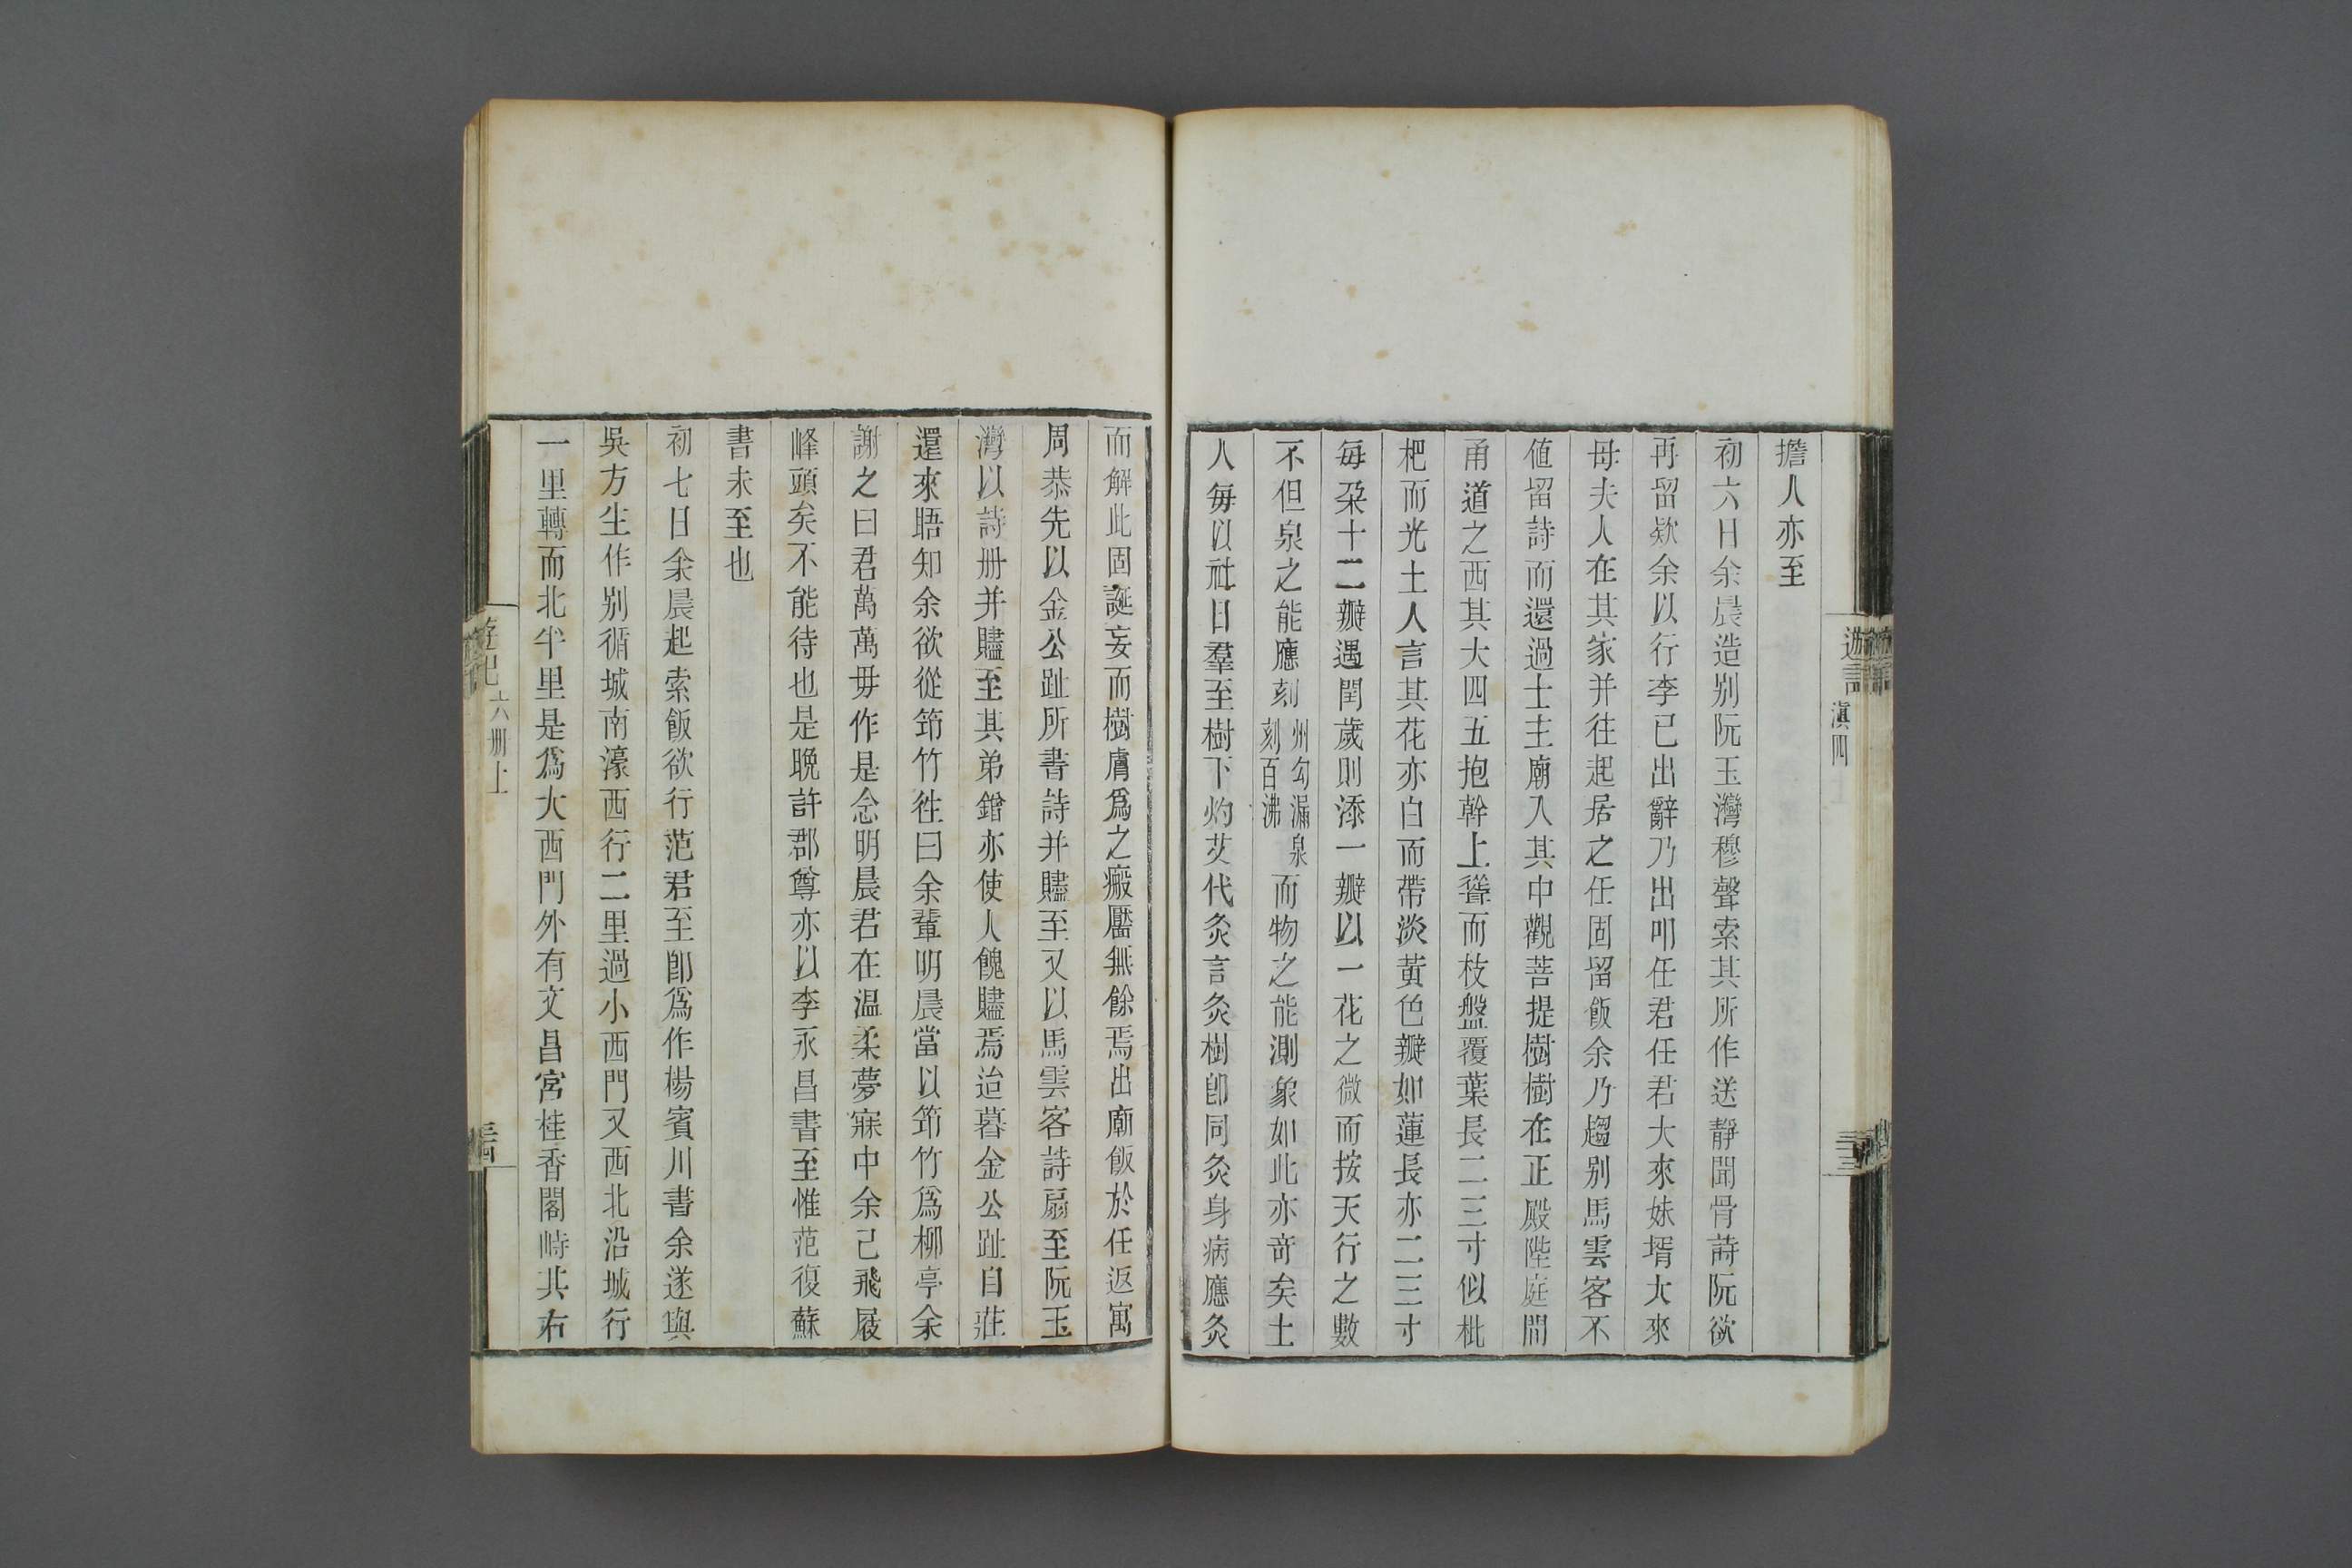 擔人亦至
初六日余晨造別阮玉灣穆聲索其所作送靜聞骨詩阮欲
再留欵余以行李已出辭乃出叩任君任君大來妹壻大來
母夫人在其家并往起居之任固留飯余乃趨别馬雲客不
値留詩而還過土主廟入其中觀菩提樹樹在正殿陛庭間
甬道之西其大四五抱幹上聳而枝盤覆葉長二三寸似枇
杷而光土人言其花亦白而帶淡黃色瓣如蓮長亦二三寸
每朶十二瓣遇閏歲則添一瓣以一花之微而按天行之數
不但泉之能應刻州勾漏泉刻百沸而物之能測象如此亦竒矣土
人每以社日羣至樹下灼艾代灸言灸樹卽同灸身病應灸
遊記
滇四上
而解此固誕妄而樹膚爲之瘢靨無餘焉出廟飯於任返寓
周恭先以金公趾所書詩并贐至又以馬雲客詩扇至阮玉
灣以詩册并贐至其弟鐕亦使人餽贐焉迨暮金公趾自莊
還來晤知余欲從筇竹徃曰余輩明晨當以筇竹爲柳亭余
謝之曰君萬萬毋作是念明晨君在温柔夢寐中余己飛屐
峰頭矣不能待也是晚許郡尊亦以李永昌書至惟范復蘇
書未至也
初七日余晨起索飯欲行范君至卽爲作楊賓川書余遂與
吳方生作别循城南濠西行二里過小西門又西北沿城行
一里轉而北半里是爲大西門外有文昌宮桂香閣峙其右
遊記
六册上